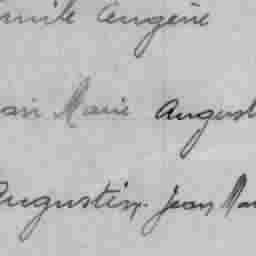 Emile Eugène
Marie August
Augustin Jean Mar